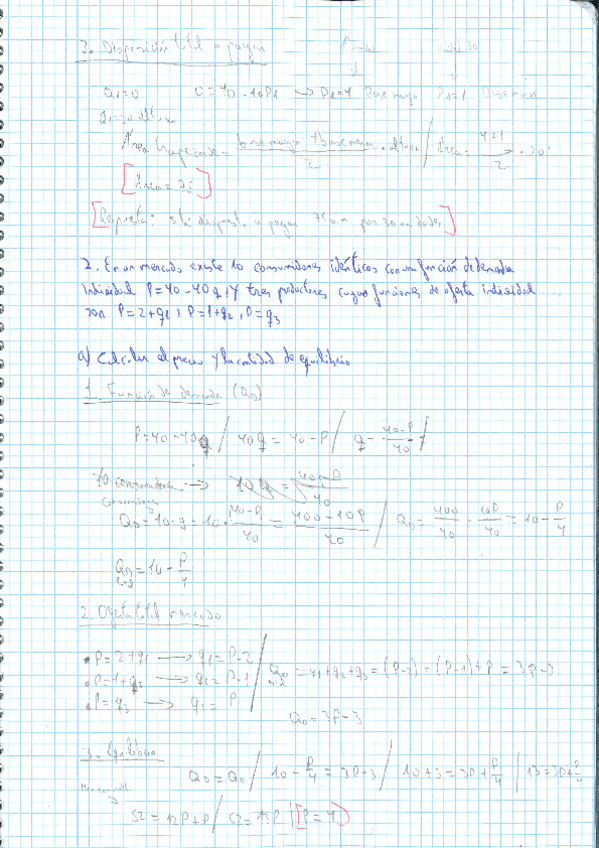 3. Disposición total a pagar
Q1=0 0=40-10P1 → P1=4 Base mayor P1=1 Base menor
Q1=30 altura
Área trapezoide = base mayor + base menor / 2 · altura / Área = 4+1 / 2 · 30
[Área = 75]
[Respuesta: está dispuesto a pagar 75 u.m por 30 unidades]
2. En un mercado existe 10 consumidores idénticos con una función de demanda
Individual P=40-40q, y tres productores cuyas funciones de oferta individual
son P=2+q1, P=1+q2, P=q3
a) Calcular el precio y la cantidad de equilibrio
1. Función de demanda (QD)
P=40-40q / 40q = 40-P / q = 40-P / 40
10 consumidores → 10q = 40-P / 40
QD=10·q = 10· 40-P / 40 = 400-10P / 40 / QD = 400 / 40 - 10P / 40 = 10 - P / 4
QD = 10 - P / 4
2. Oferta total mercado
• P=2+q1 → q1=P-2
• P=1+q2 → q2=P-1 / = q1+q2+q3 = (P-2) + (P-1) + P = 3P-3
• P=q3 → = P
QO=3P-3
3. Equilibrio
QD=QO / 10 - P / 4 = 3P-3 / 10+3 = 3P + P / 4 / 13=3P+ P / 4
52 = 12P+P / 52 = 13P / [P=4]